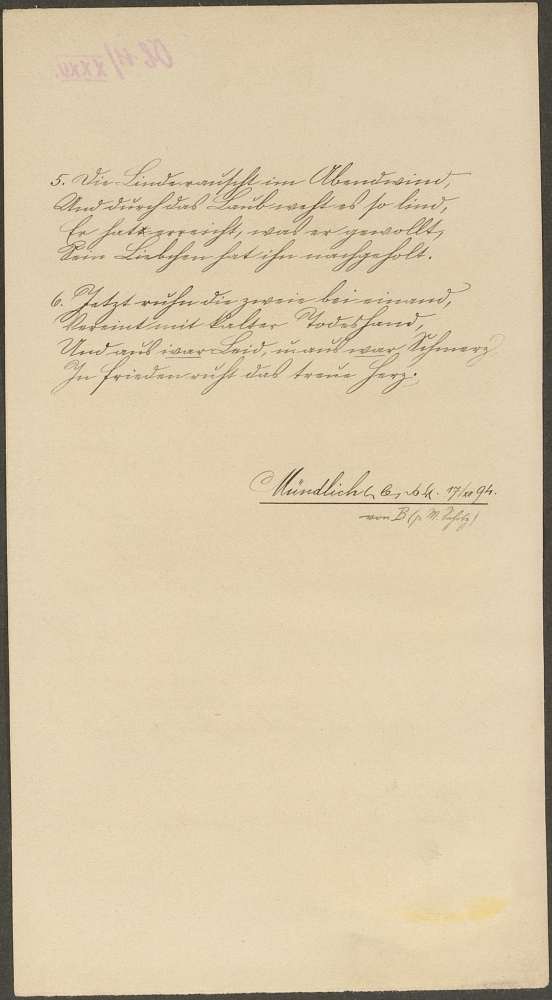 5. Die Linde rauscht im Abendwind,
Und durch das Laub weht es so lind,
Er hat erreicht, was er gewollt,
Sein Liebchen hat ihn nachgeholt.
6. Jetzt ruhn die zweie bei einand,
Vereint mit kalter Todeshand,
Und aus war Leid, u. aus war Schmerz
In Frieden ruht das treue Herz.
Mündlich 17/XI 94.
von B